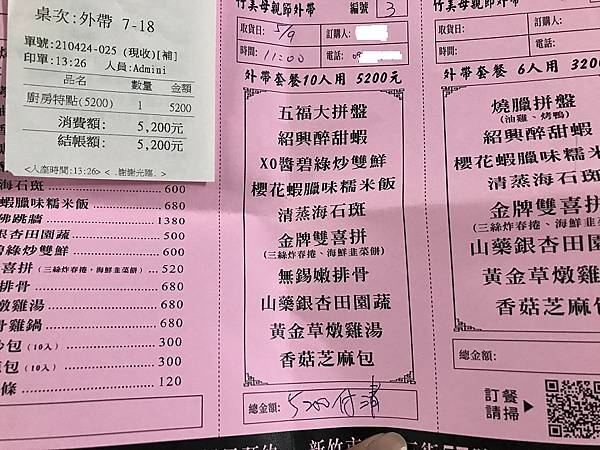 桌次:外帶 7-18
單號:210424-025 (現收)[補]
印單:13:26 人員:Admini
品名 數量 金額
廚房特點(5200) 1 5200
消費額: 5,200元
結帳額: 5,200元
<入座時間:13:26> < .謝謝光臨. >
海石斑 600
蝦臘味糯米飯 680
佛跳牆 1380
銀杏田園蔬 500
碧綠炒雙鮮 600
喜拼(三絲炸春捲、海鮮韭菜餅) 520
排骨 680
燉雞湯 680
骨雞鍋 680
包(10入) 300
包(10入) 300
條 120
竹美母親節外帶 編號 3
取貨日: 5/9 訂購人:
時間: 11:00 電話: 09
外帶套餐10人用 5200元
五福大拼盤
紹興醉甜蝦
XO醬碧綠炒雙鮮
櫻花蝦臘味糯米飯
清蒸海石斑
金牌雙喜拼
(三絲炸春捲、海鮮韭菜餅)
無錫嫩排骨
山藥銀杏田園蔬
黃金草燉雞湯
香菇芝麻包
總金額: 5200付清
竹美母親節外帶
取貨日: 訂購人:
時間: 電話:
外帶套餐 6人用 3200
燒臘拼盤
(油雞、烤鴨)
紹興醉甜蝦
櫻花蝦臘味糯米
清蒸海石斑
金牌雙喜拼
(三絲炸春捲、海鮮韭菜餅)
山藥銀杏田園
黃金草燉雞湯
香菇芝麻包
總金額:
訂餐
請掃
新竹市